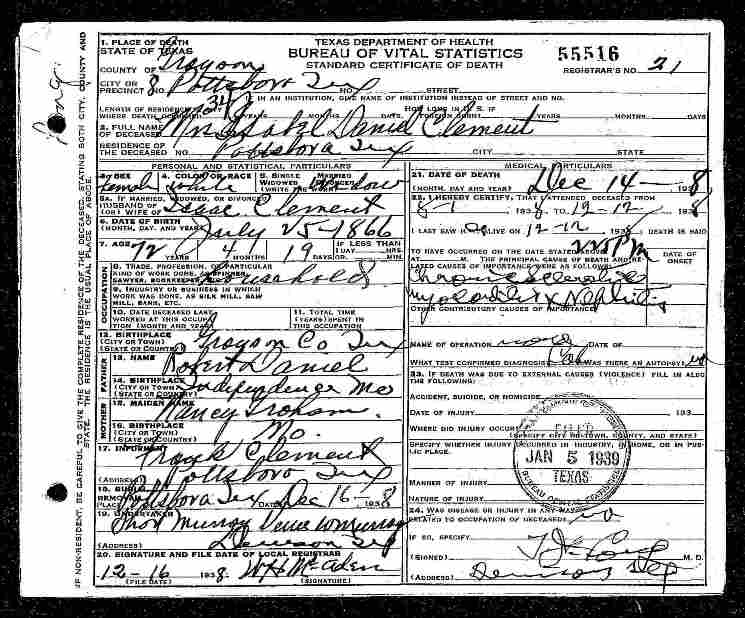 TEXAS DEPARTMENT OF HEALTH
BUREAU OF VITAL STATISTICS
STANDARD CERTIFICATE OF DEATH
55516
REGISTRAR'S NO. 21
1. PLACE OF DEATH
STATE OF TEXAS
COUNTY OF Grayson
CITY OR PRECINCT NO. 8 Pottsboro Tex NO. STREET
IF IN AN INSTITUTION, GIVE NAME OF INSTITUTION INSTEAD OF STREET AND NO.
LENGTH OF RESIDENCE WHERE DEATH OCCURRED YEARS MONTHS DAYS HOW LONG IN U.S. IF FOREIGN BORN? YEARS MONTHS DAYS
2. FULL NAME OF DECEASED Mrs Isabel Daniel Clement
RESIDENCE OF THE DECEASED NO. Pottsboro Tex CITY STATE
PERSONAL AND STATISTICAL PARTICULARS
3. SEX Female 4. COLOR OR RACE White 5. SINGLE MARRIED WIDOWED DIVORCED Widow
5a. IF MARRIED, WIDOWED, OR DIVORCED
HUSBAND OF (OR) WIFE OF Isaac Clement
6. DATE OF BIRTH (MONTH, DAY, AND YEAR) July 25-1866
7. AGE 72 YEARS 4 MONTHS 19 DAYS IF LESS THAN 1 DAY HRS. OR MIN.
OCCUPATION
8. TRADE, PROFESSION, OR PARTICULAR KIND OF WORK DONE, AS SPINNER, SAWYER, BOOKKEEPER Household
9. INDUSTRY OR BUSINESS IN WHICH WORK WAS DONE, AS SILK MILL, SAW MILL, BANK, ETC.
10. DATE DECEASED LAST WORKED AT THIS OCCUPATION (MONTH AND YEAR)
11. TOTAL TIME (YEARS) SPENT IN THIS OCCUPATION
12. BIRTHPLACE (CITY OR TOWN) (STATE OR COUNTRY) Grayson Co Tex
FATHER
13. NAME Robert Daniel
14. BIRTHPLACE (CITY OR TOWN) (STATE OR COUNTRY) Independence Mo
MOTHER
15. MAIDEN NAME Nancy Graham
16. BIRTHPLACE (CITY OR TOWN) (STATE OR COUNTRY) Mo.
17. INFORMANT Frank Clement
(ADDRESS) Pottsboro Tex
18. BURIAL REMOVAL
PLACE Pottsboro Tex DATE Dec 16-1938
19. UNDERTAKER Murray
(ADDRESS) Denison Tex
20. SIGNATURE AND FILE DATE OF LOCAL REGISTRAR
12-16 1938. WH McAden
(FILE DATE) (SIGNATURE)
MEDICAL PARTICULARS
21. DATE OF DEATH (MONTH, DAY AND YEAR) Dec 14- 1938
22. I HEREBY CERTIFY, THAT I ATTENDED DECEASED FROM
8-1 1938, TO 12-12 1938
I LAST SAW ALIVE ON 12-12 1938 DEATH IS SAID
TO HAVE OCCURRED ON THE DATE STATED ABOVE
AT M. THE PRINCIPAL CAUSE OF DEATH AND RELATED CAUSES OF IMPORTANCE WERE AS FOLLOWS:
DATE OF ONSET
Chronic
Myocarditis & Nephritis
OTHER CONTRIBUTORY CAUSES OF IMPORTANCE:
NAME OF OPERATION none DATE OF
WHAT TEST CONFIRMED DIAGNOSIS Lab WAS THERE AN AUTOPSY? no
23. IF DEATH WAS DUE TO EXTERNAL CAUSES (VIOLENCE) FILL IN ALSO THE FOLLOWING:
ACCIDENT, SUICIDE, OR HOMICIDE
DATE OF INJURY 193
WHERE DID INJURY OCCUR?
(SPECIFY CITY OR TOWN, COUNTY, AND STATE)
SPECIFY WHETHER INJURY OCCURRED IN INDUSTRY, IN HOME, OR IN PUBLIC PLACE.
MANNER OF INJURY
NATURE OF INJURY
FILED
JAN 5 1939
TEXAS
24. WAS DISEASE OR INJURY IN ANY WAY RELATED TO OCCUPATION OF DECEASED? no
IF SO, SPECIFY
(SIGNED) M. D.
(ADDRESS) Denison Tex
IF NON-RESIDENT, BE CAREFUL TO GIVE THE COMPLETE RESIDENCE OF THE DECEASED, STATING BOTH CITY, COUNTY AND STATE. THE RESIDENCE IS THE USUAL PLACE OF ABODE.